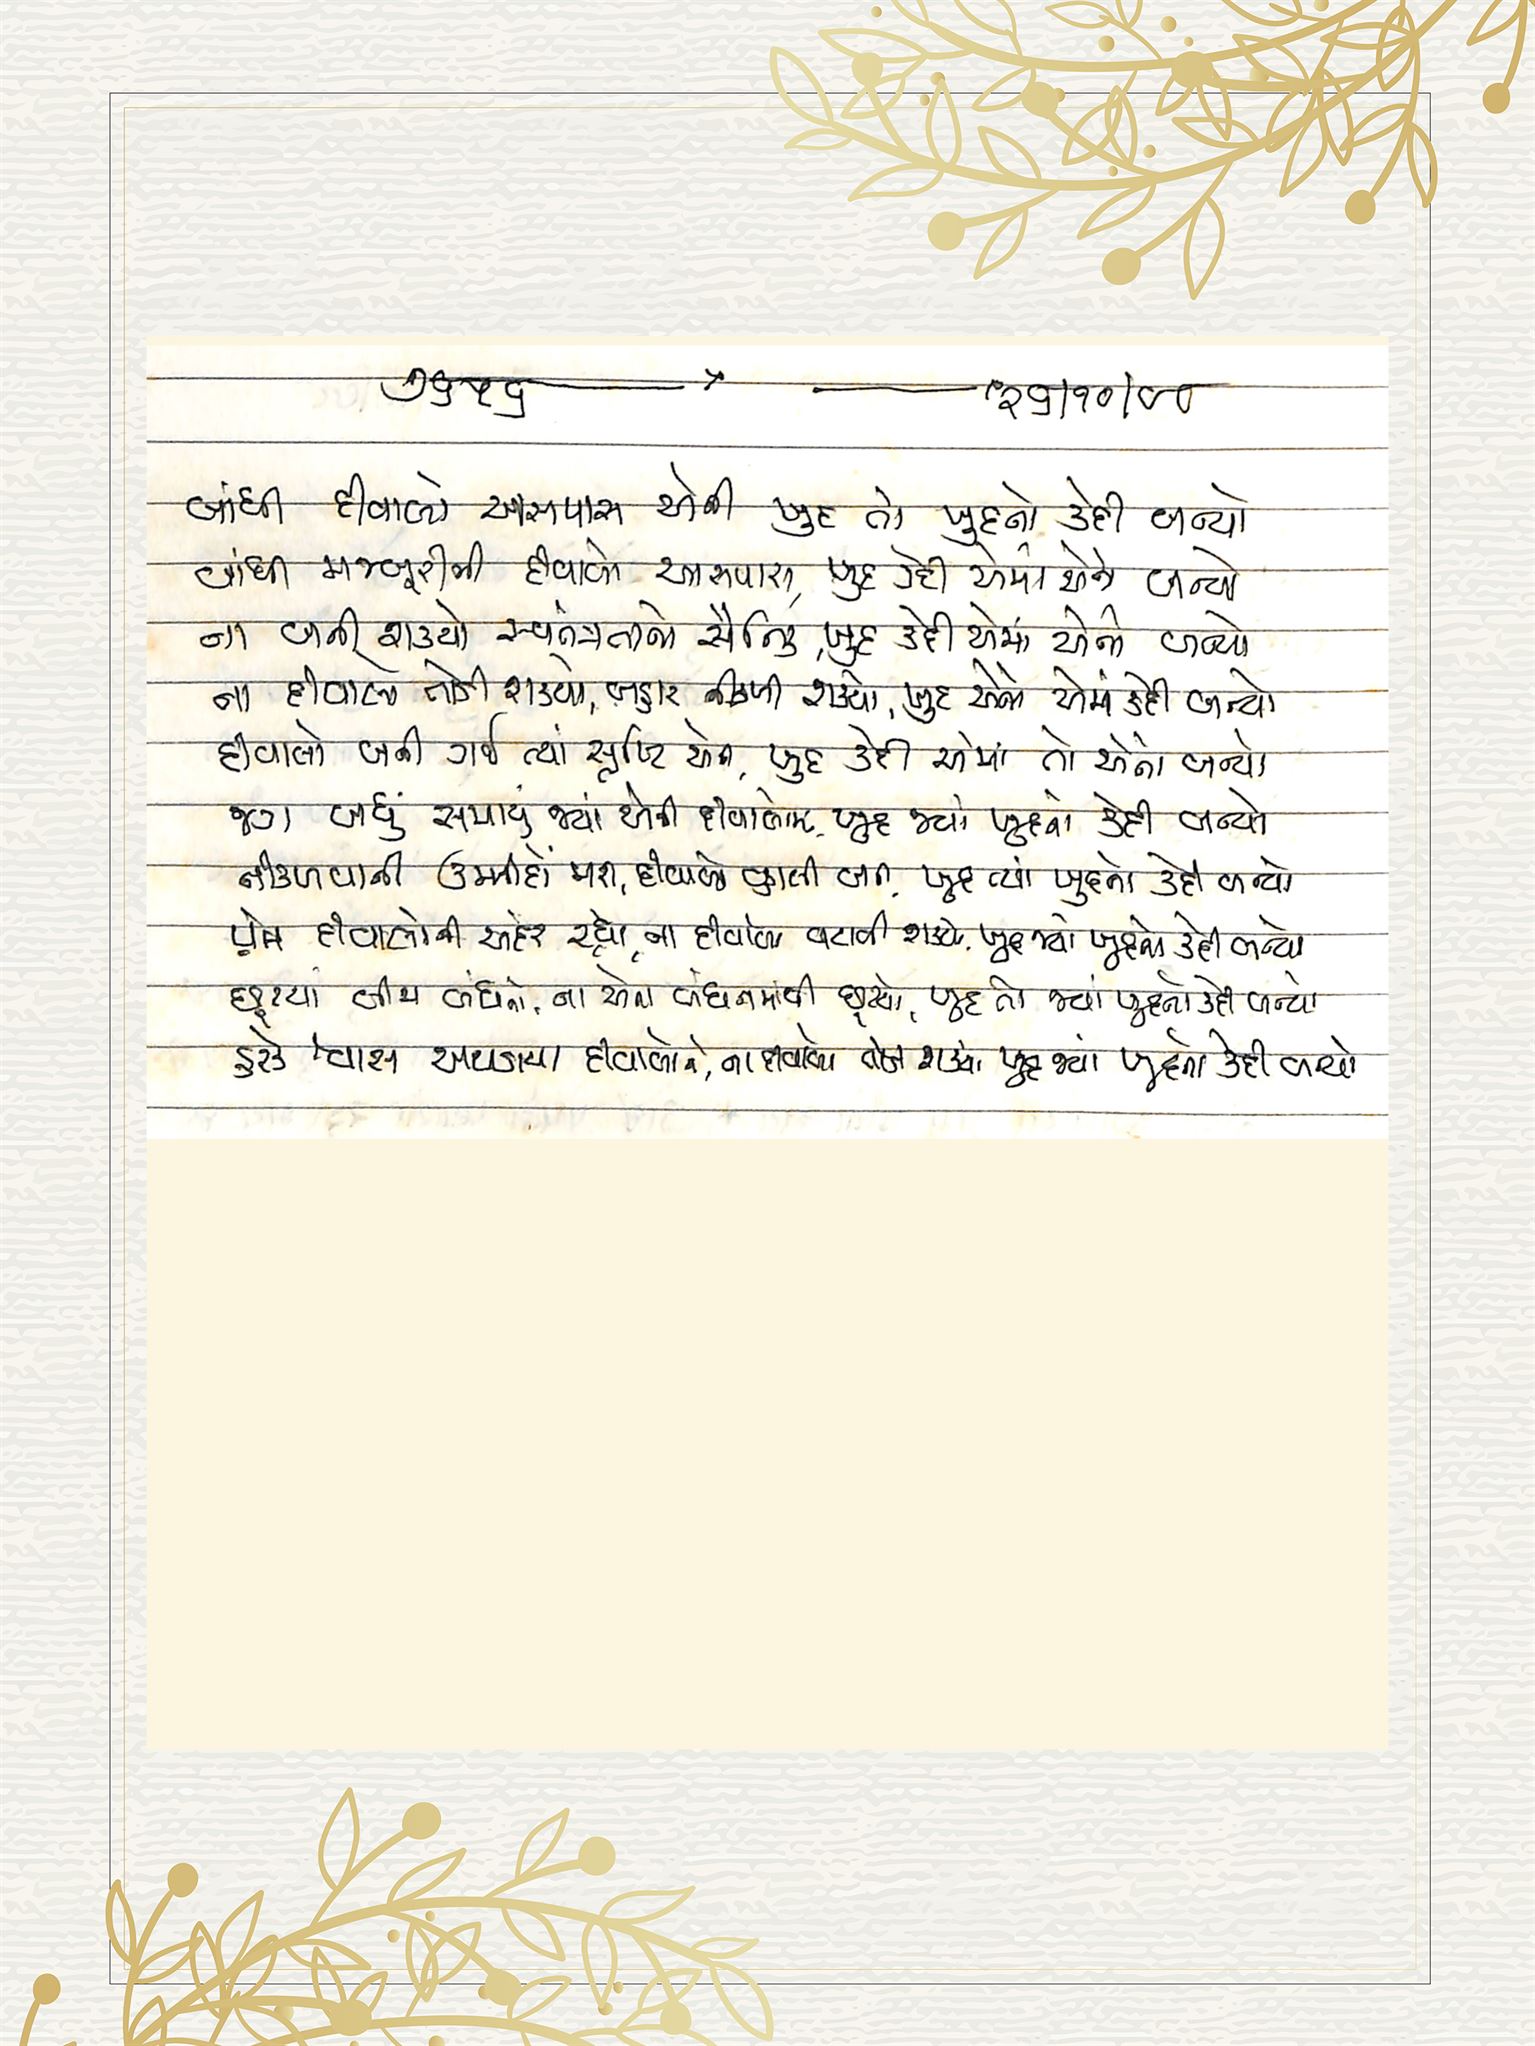 ૭૬૫૬ ×
૨૬/૧૦/૦૦
બાંધી દીવાલો આસપાસ એની ખુદ તો ખુદનો કેદી બન્યો
બાંધી મજબૂરીની દીવાલો આસપાસ, ખુદ કેદી એમાં એનો બન્યો
ના બની શક્યો સ્વતંત્રતાનો સૈનિક, ખુદ કેદી એમાં એનો બન્યો
ના દીવાલો તોડી શક્યો, બહાર નીકળી શક્યો, ખુદ એનો એમાં કેદી બન્યો
દીવાલો બની ગઈ ત્યાં સૃષ્ટિ એની, ખુદ કેદી એમાં તો એનો બન્યો
જગ બધું સમાયું જ્યાં એની દીવાલોમાં, ખુદ જ્યાં ખુદનો કેદી બન્યો
નીકળવાની ઉમ્મીદો મરી, દીવાલો વ્હાલી બની, ખુદ ત્યાં ખુદનો કેદી બન્યો
પ્રેમ દીવાલોની અંદર રહ્યો, ના દીવાલો વટાવી શક્યો, ખુદ જ્યાં ખુદનો કેદી બન્યો
છૂટયાં બીજા બંધનો, ના એના બંધનમાંથી છૂટયો, ખુદ તો જ્યાં ખુદનો કેદી બન્યો
હરેક શ્વાસ અથડાયા દીવાલોને, ના દીવાલો તોડી શક્યો ખુદ જ્યાં ખુદનો કેદી બન્યો